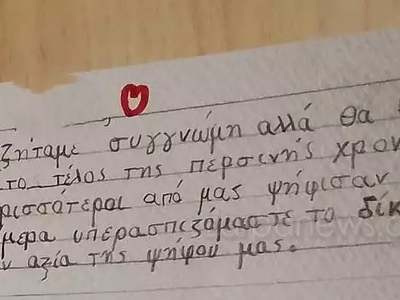 ζητάμε συγγνώμη αλλά θα
το τέλος της περσινής χρον
ρισσότεροι από μας ψήφισαν
μερα υπερασπιζόμαστε το δίκ
ν αξία της ψήφου μας.